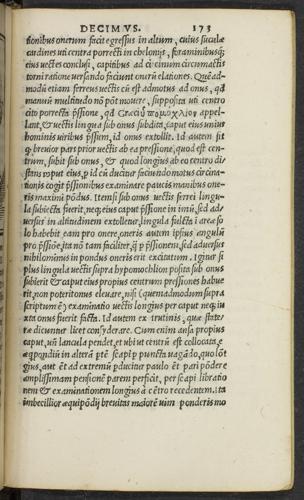 DECIMVS. 173
tionibus onerum facit egressus in altum, cuius suculæ
cardines uti centra porrecti in chelonijs, foraminibusq;
eius uectes conclusi, capitibus ad circinum circumactis
torni ratione uersando faciunt oneru elationes. Quēad-
modū etiam ferreus uectis cū est admotus ad onus, qđ
manuū multitudo nō pōt mouere, supposita uti centro
cito porrecta pressione, qđ Græci appel-
lant, & uectis lingua sub onus subdita, caput eius unius
hominis uiribus pressum, id onus extollit. Id autem fit
q breuior pars prior uectis ab ea pressione, quod est cen-
trum, subit sub onus, & quod longius ab eo centro di-
stans caput eius, p id cū ducitur faciundo motus circina-
tionis cogit pressionibus examinare paucis manibus one-
ris maximū pōdus. Item si sub onus uectis ferrei lingu-
la subiecta fuerit, neq; eius caput pressione in imū, sed ad-
uersus in altitudinem extolletur, lingula fulcta in areæ so-
lo habebit eam pro onere, oneris autem ipsius angulū
pro pressione, ita nō tam faciliter, q̃ p pressionem, sed aduersus
nihilominus in pondus oneris erit excitatum. Igitur si
plus lingula uectis supra hypomochlion posita sub onus
subierit & caput eius propius centrum pressiones habue-
rit, non poterit onus eleuare, nisi (quemadmodum supra
scriptum ē) examinatio uectis longius per caput neq; iu
xta onus fuerit facta. Id autem ex trutinis, quæ state-
ræ dicuntur licet considerare. Cum enim ansa propius
caput, uñ lancula pendet, et ubi ut centrū est collocata, et
æqpondiū in alterā ptē scapi p puncta uagādo, quo lōt
gius, aut ēt ad extremū pducitur paulo ēt pari pōdere
amplissimam pensionē parem perficit, per scapi libratio
nem & examinationem longius à cētro recedentem. ita
imbecillior æquipōdij breuitas maiorē uim ponderis mo